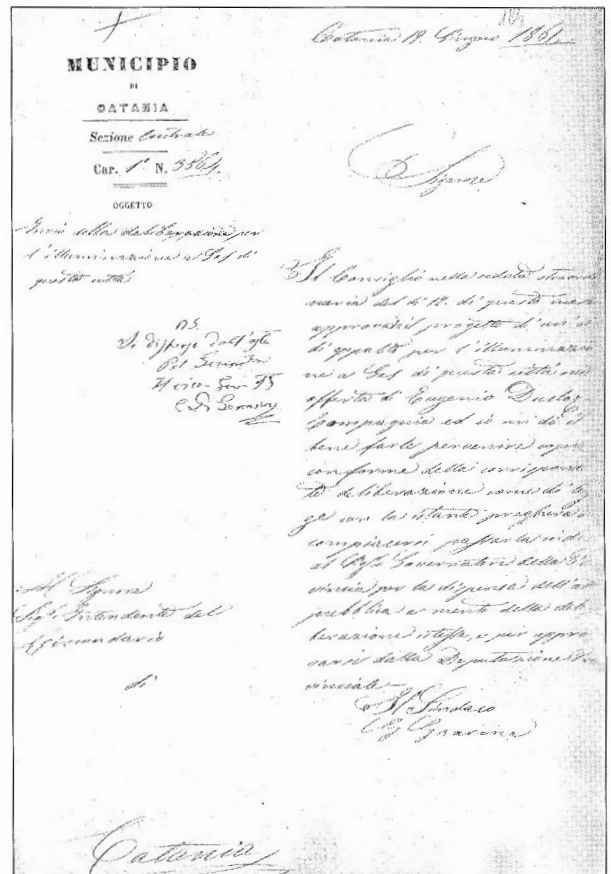 Catania 19. Giugno 1861.
MUNICIPIO
DI
CATANIA
Sezione Centrale
Car. 1° N. 3564.
OGGETTO
Invio della deliberazione per
l'illuminazione a Gas di
questa città
Signore
Il Consiglio nella seduta straord
naria del dì 12. di questo mese
approvava il progetto di un'
di appalto per l'illuminazio
ne a Gas di questa città
offerta di Eugenio
Compagnia ed io mi dò il
bene farle pervenire copia
conforme della corrisponde
te deliberazione come di le
ge con la istante preghiera
compiacersi passarla
al Governatore della
vincia per la dispensa dell'a
pubblica a mente della deli
berazione istessa, e per appro
varsi dalla Deputazione Pro
vinciale
Il Sindaco
Gravina
Al Signore
Sig. Intendente del
Circondario
di
Catania